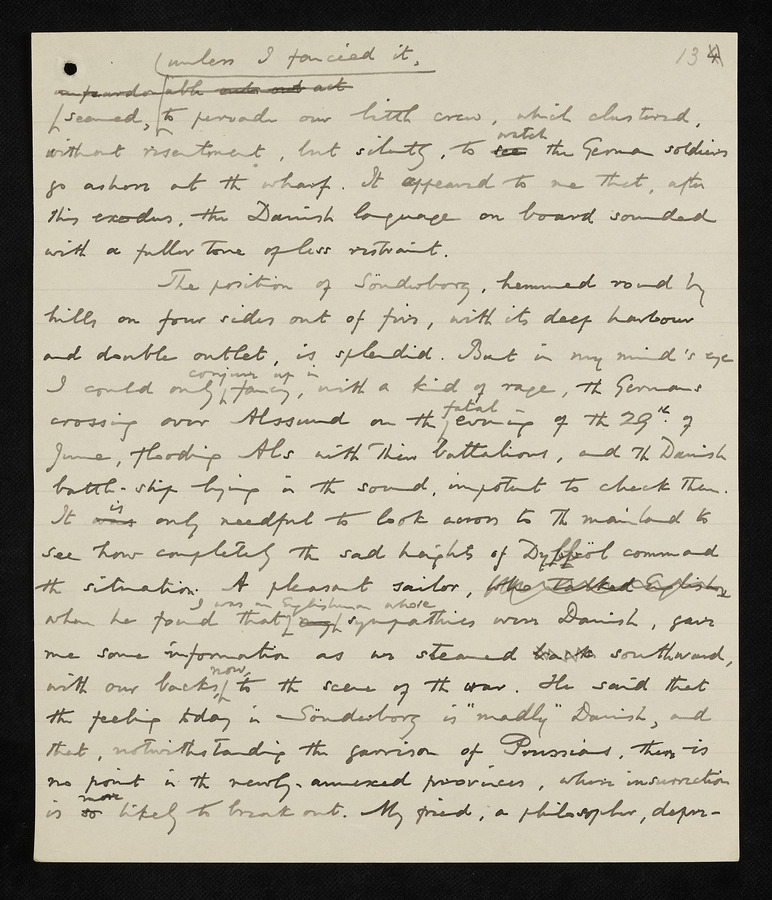 134
unless I fancied it,
seemed, to pervade our little crew, which clustered,
watch
without resentment, but silently, to see the German soldiers
go ashore at th wharf. It appeared to me that, after
this exodus, the Danish language on board sounded
with a fuller tone of less restraint.
The position of Sönderborg, hemmed round by
hills on four sides out of five, with its deep harbour
and double outlet, is splendid. But in my mind's eye
conjure up in
I could only fancy, with a kind of rage, th Germans
fatal
crossing over Alssund on th evening of th 29th. of
June, flooding Als with their battalions, and th Danish
battle-ship lying in th sound, impotent to check them.
is
It was only needful to look across to th mainland to
see how completely th sad heights of Dybböl command
th situation. A pleasant sailor, who talked English
I was an Englishman whose
when he found that my sympathies were Danish, gave
me some information as we steamed back southward,
now
with our backs to th scene of th war. He said that
th feeling today in Sönderborg is "madly" Danish, and
that, notwithstanding the garrison of Prussians, there is
no point in th newly-annexed provinces, where insurrection
more
is so likely to break out. My friend, a philosopher, depre-